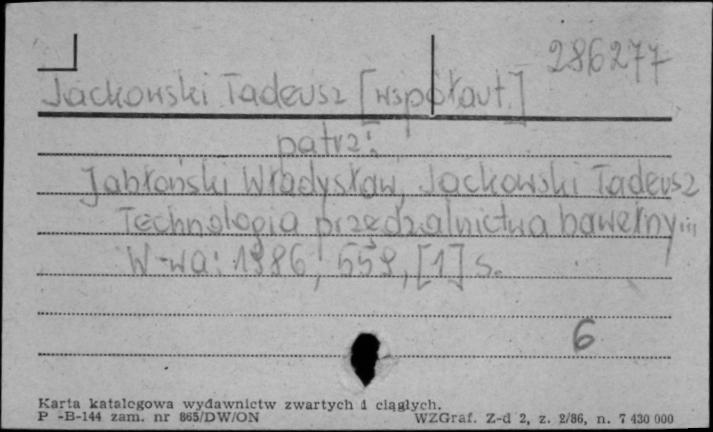 286277
Jackowski Tadeusz [współaut.]
patrz:
Jabłoński Władysław, Jackowski Tadeusz
Technologia przędzalnictwa bawełny...
W-wa: 1986, 559, [1] s.
6
Karta katalogowa wydawnictw zwartych i ciągłych.
P -B-144 zam. nr 865/DW/ON WZGraf. Z-d 2, z. 2/86, n. 7 430 000